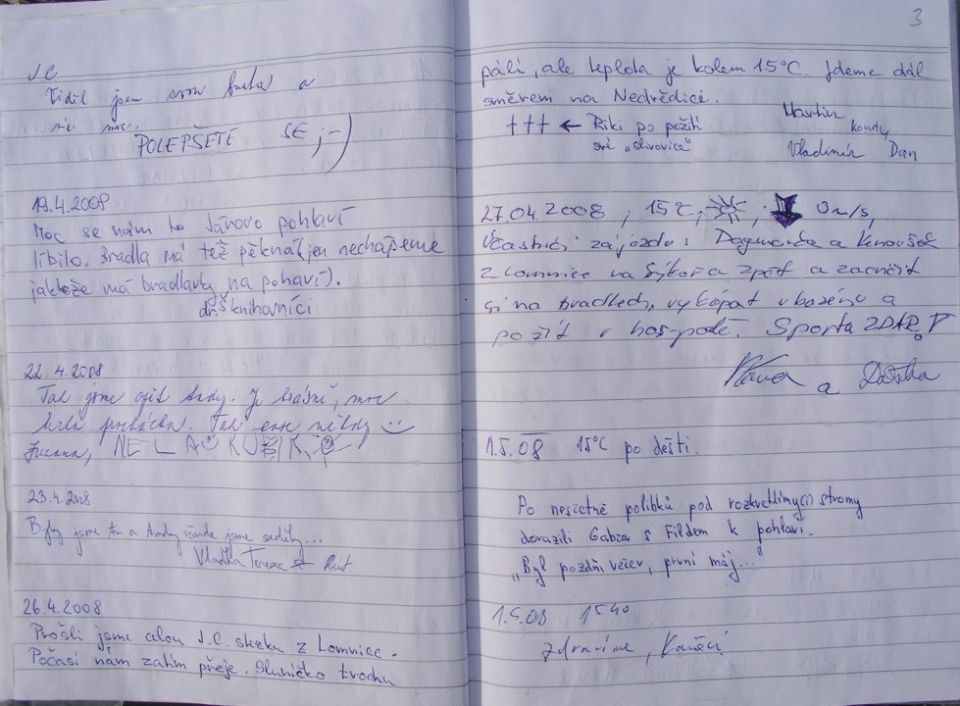 J.C
Viděl jsem svou a
nic moc.
POLEPŠETE SE ;-)
19.4.2008
Moc se nám to Járovo pohlaví
líbilo. Bradla má též pěkná (jen nechápeme
jaktože má bradlavky na pohaví).
drš knihovníci
22. 4. 2008
Tak jsme opět tady. Je krásně, moc
. Tak zase někdy
Zuzana, NELA KUBÍK,
23.4.2008
Byly jsme tu a tady všude jsme seděly...
Vlaďka Tereza Rut
26.4.2008
Prošli jsme celou J.C. stezku z Lomnice.
Počasí nám zatím přeje. Sluníčko trochu
3
pálí, ale teplota je kolem 15°C. Jdeme dál
směrem na Nedvědici.
+++ ← Riki po požití
své „slivovice"
Martin
Vladimír Dan
27.04.2008, 15°C, , 0 m/s,
Účastníci zájezdu: Dagmarda a Kenoušek
z Lomnice na Sýkoř a zpět a zacvičit
si na bradlech, vykápat v bazénu a
požít v hos-podě. Sportu ZDAR!
a
1.5.08 15°C po dešti.
Po nesčetně polibků pod rozkvetlými(i) stromy
dorazili Gabza s Fildem k pohlaví.
„Byl pozdní večer, první máj...
1.5.08 15 40
Zdravíme,